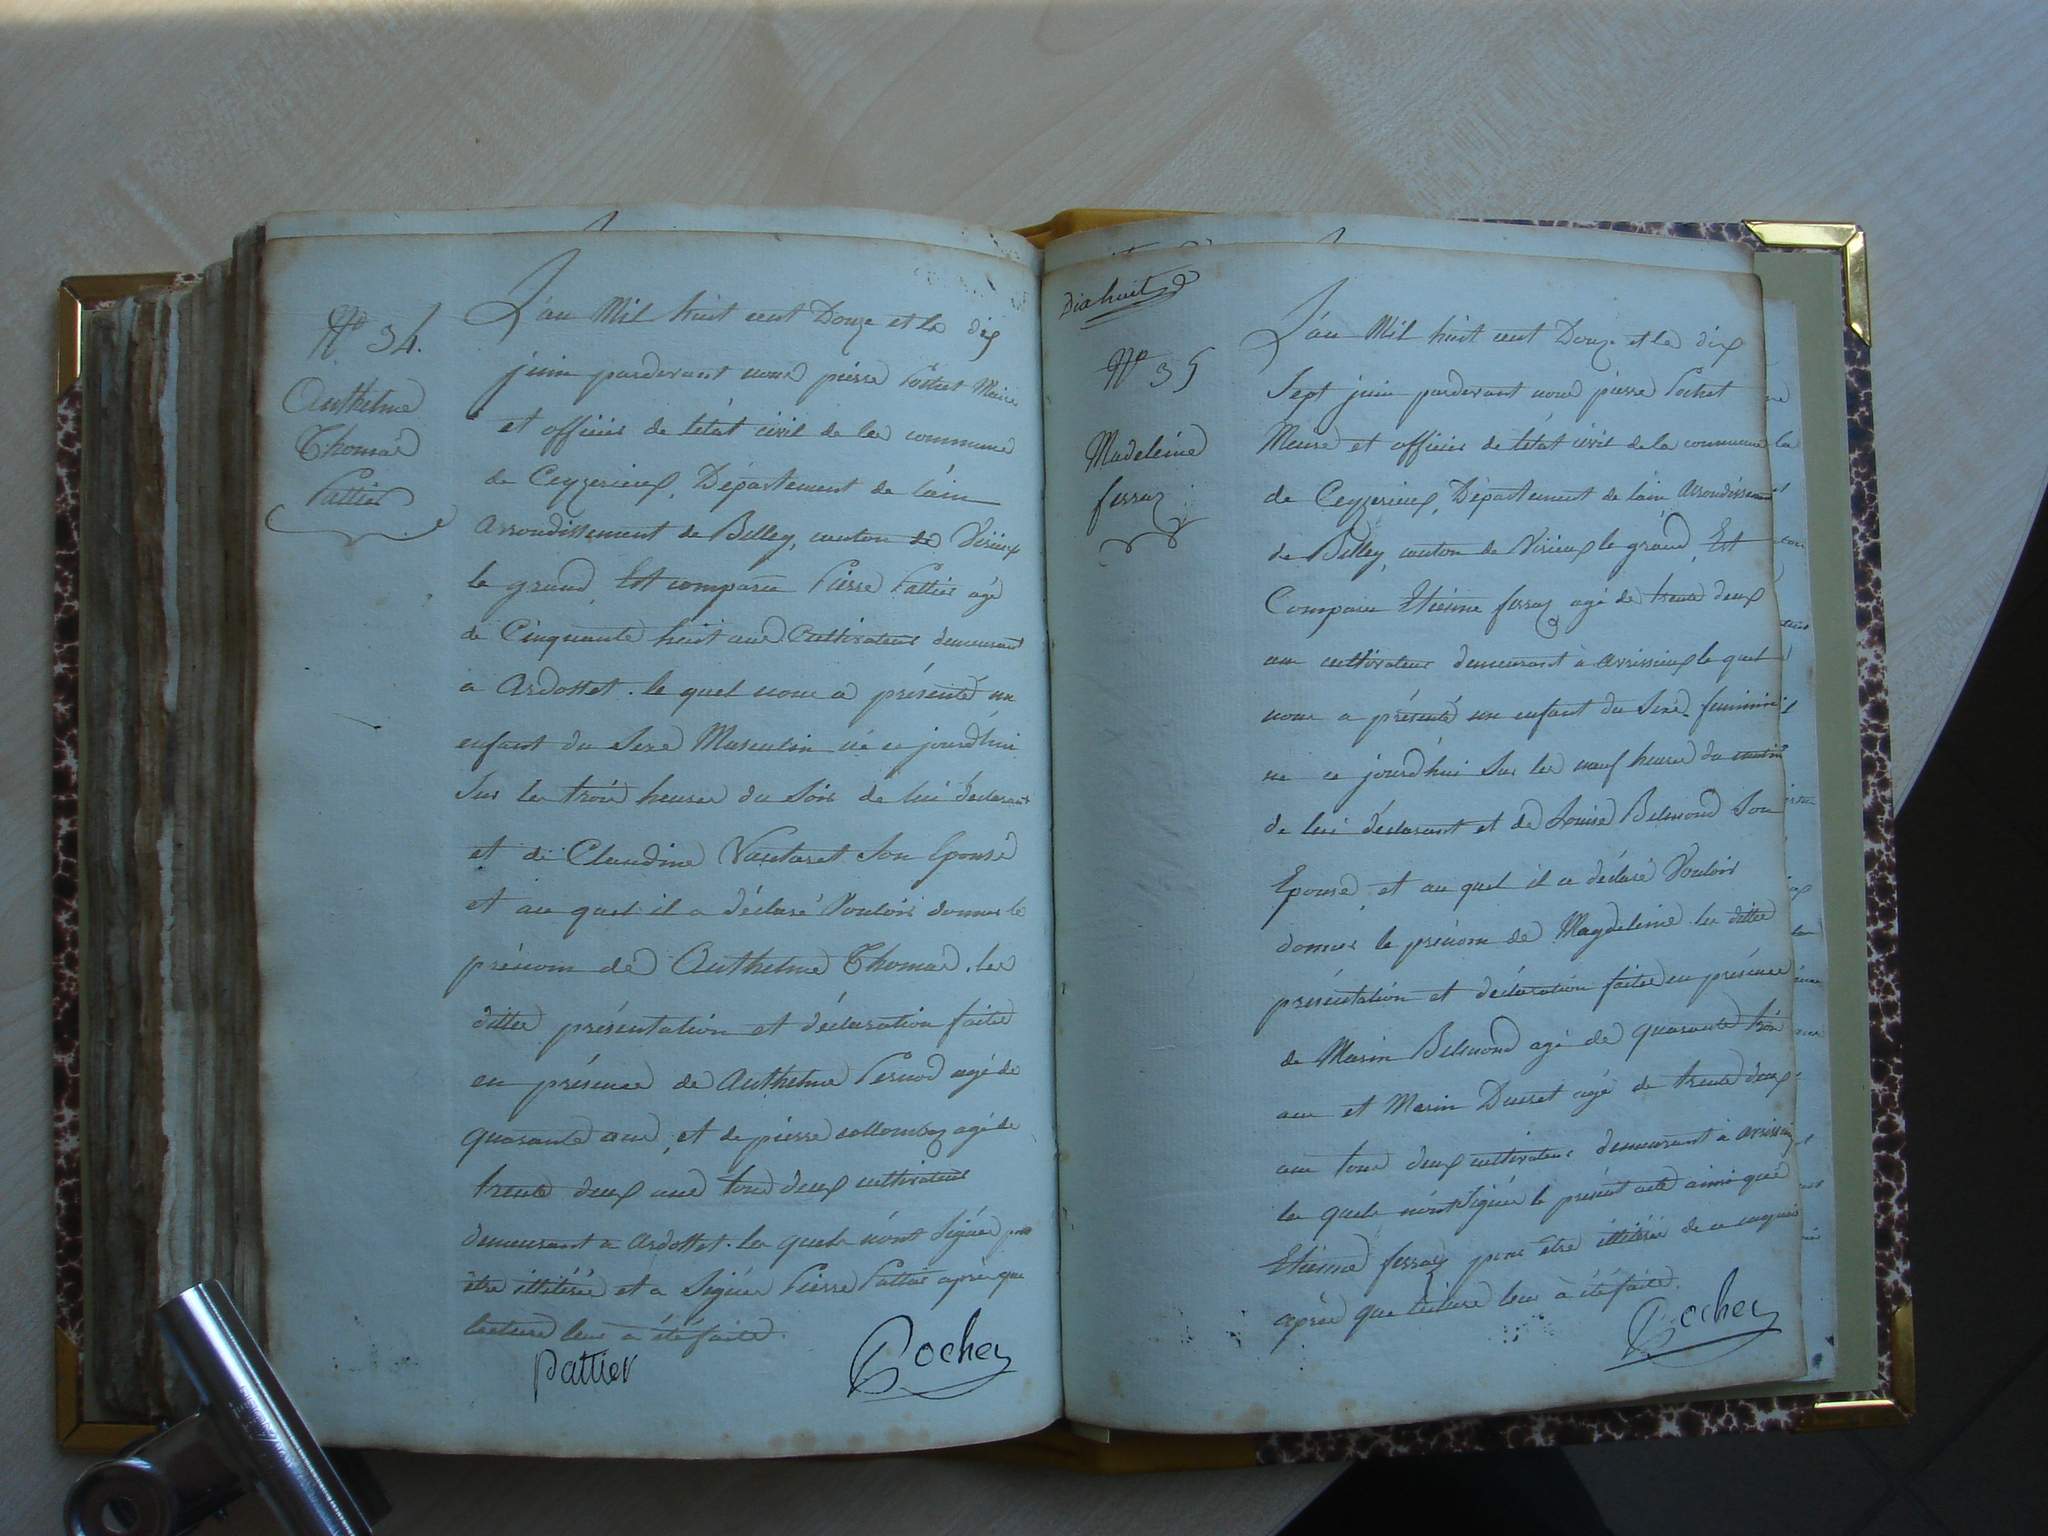 N° 34.
Anthelme
Thomas
Pattier
L'an Mil huit cent Douze et le dix
juin pardevant nous pierre Pochet Maire
et officier de l'état civil de la commune
de Ceyzerieux, Département de l'ain
Arrondissement de Belley, canton de Virieux
le grand, Est comparu Pierre Pattier agé
de Cinquante huit ans Cultivateur demeurant
a Ardosset. le quel nous a présenté un
enfant du Sexe Masculin né ce jourd'hui
Sur les trois heures du Soir de lui déclarant
et de Claudine Vautaret Son Epouse
et au quel il a déclaré Vouloir donner le
prénom de Anthelme Thomas. les
dittes présentation et déclaration faites
en présence de Anthelme Pernod agé de
quarante ans, et de pierre collombaz agé de
trente deux ans tous deux cultivateurs
demeurant a Ardosset. les quels n'ont Signés pour
être illitérés et a Signé Pierre Pattier après que
lecture leur a été faite.
Pattier Pochez
Dix huit
N° 35
Madeleine
ferraz
L'an Mil huit cent Douze et le dix
Sept juin pardevant nous pierre Pochet
Maire et officier de l'état civil de la commune
de Ceyzerieux, Département de l'ain Arrondissement
de Belley, canton de Virieux le grand, Est
Comparu Etienne ferraz agé de trente deux
ans cultivateur demeurant à avrissieux le quel
nous a présenté un enfant du Sexe feminin
né ce jourd'hui Sur les neuf heures du matin
de lui déclarant et de Louise Belmond Son
Epouse, et au quel il a déclaré Vouloir
donner le prénom de Magdeleine. les dittes
présentation et déclaration faites en présence
de Marin Belmond agé de quarante trois
ans et Marin Ducret agé de trente deux
ans tous deux cultivateurs demeurant à avrissieux
les quels n'ont Signés le présent acte ainsi que
Etienne ferraz pour être illitérés de ce enquis
après que lecture leur à été faite.
Pochez